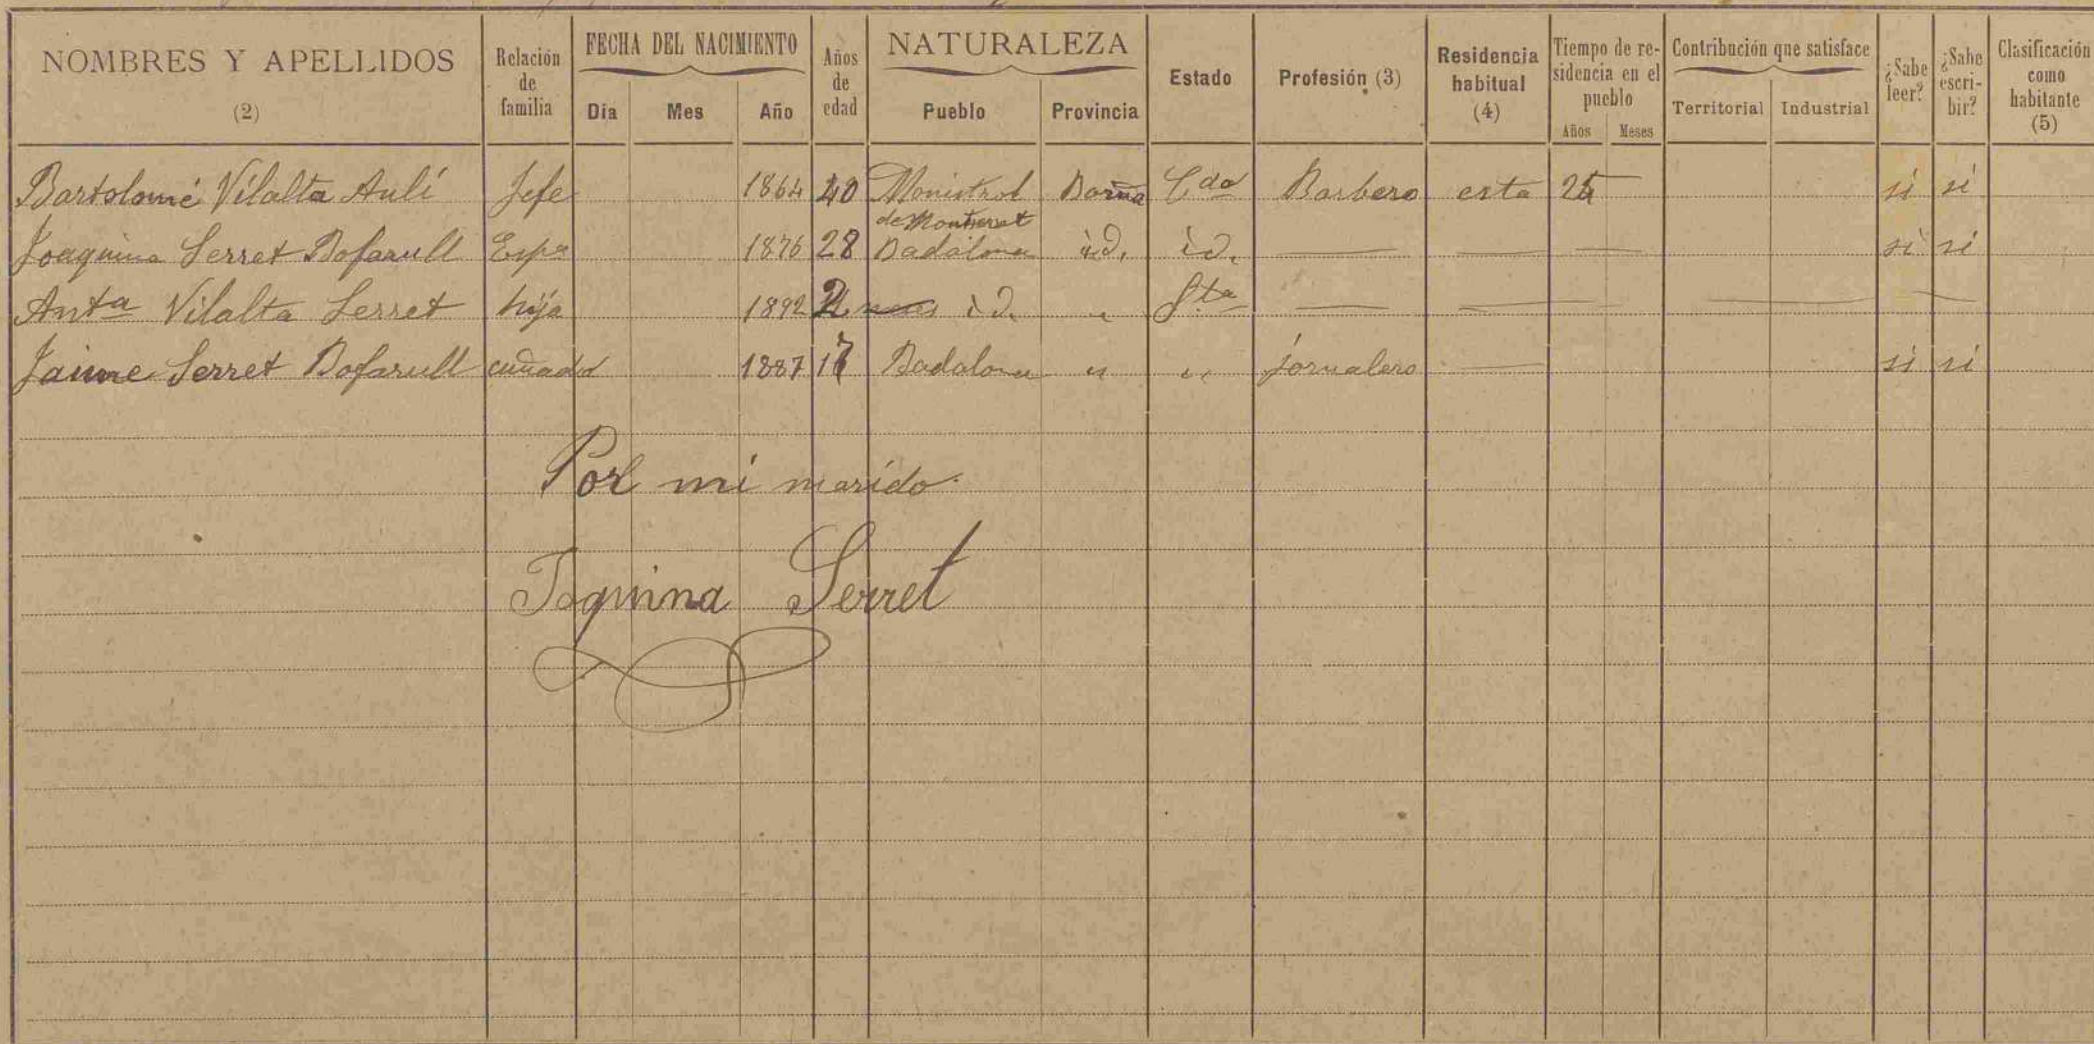 NOMBRES Y APELLIDOS (2) Relación de familia FECHA DEL NACIMIENTO Día Mes Año Años de edad NATURALEZA Pueblo Provincia Estado Profesión (3) Residencia habitual (4) Tiempo de residencia en el pueblo Años Meses Contribución que satisface Territorial Industrial ¿Sabe leer? ¿Sabe escribir? Clasificación como habitante (5)
Bartolomé Vilalta Aulí Jefe 1864 40 Monistrol de Montserrat Barna Cdo Barbero esta 25 si si
Joaquina Serret Bofarull Espa 1876 28 Badalona id. id. — — — si si
Anta Vilalta Serret hija 1892 2 id. " Sta — — — — —
Jaime Serret Bofarull cuñado 1887 17 Badalona " " jornalero — si si
Por mi marido.
Joquina Serret